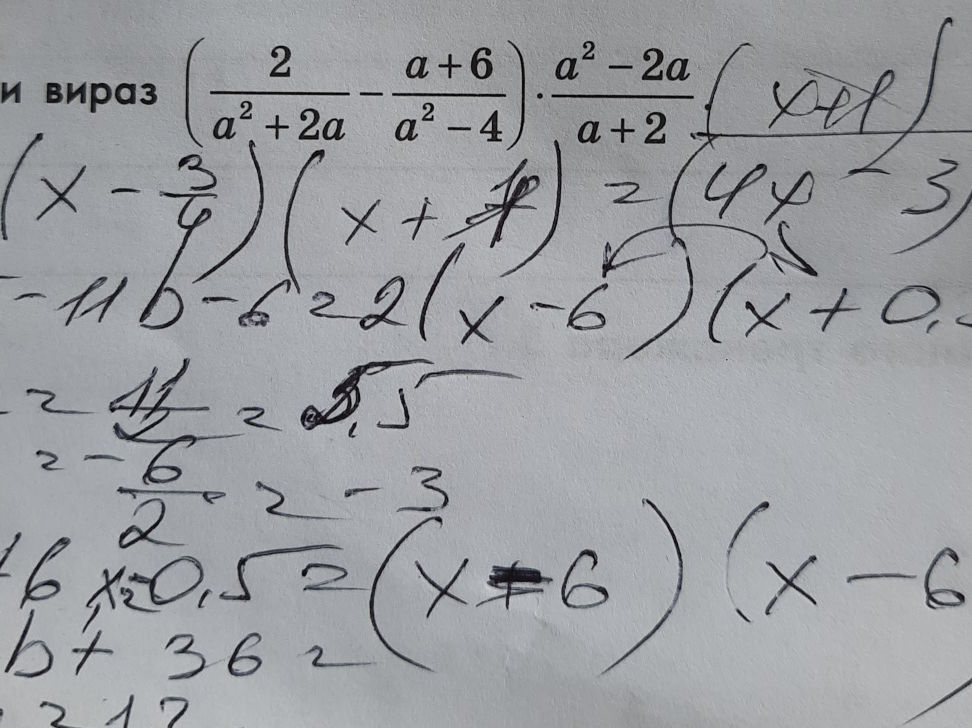 и вираз (2/(a² + 2a) − (a + 6)/(a² − 4)) · (a² − 2a)/(a + 2)
(x - 3/4) (x + 1) = (4x - 3)
- 11b - 6 = 2 (x - 6) (x + 0,
= 11/2 = 5,5
= - 6/2 = - 3
6 x=0,5 = (x - 6) (x - 6
b + 36 =